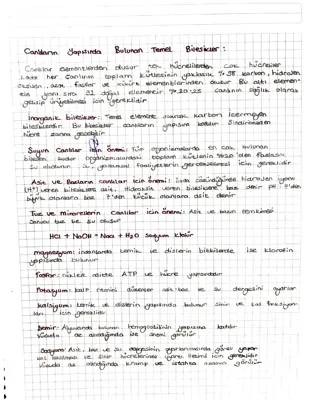 Canlıların Yapısında Bulunan Temel Bileşikler:
Canlılar elementlerden oluşur tek hücrelilerden çok hücreliler
kadar her canlının toplam kütlesinin yaklaşık %98 karbon, hidrojen
oksijen, azot, fosfor ve kükürt elementlerinden oluşur Bu altı element-
in yanı sıra 21 doğal elementin %20-25 canlının sağlık olarak
gelişip üreyebilmesi için gereklidir
İnorganik bileşikler: Temel element olarak karbon içermeyen
bileşiklerdir. Bu bileşikler canlıların yapısına katılır Sindirilmeden
hücre zarına geçebilir
Suyun Canlılar için önemi: Tüm organizmalarda en çok bulunan
bileşen sudur organizmalardaki toplam kütlenin %70 den fazlasını
su oluşturur yaşamsal faaliyetlerin gerçekleşmesi için gereklidir
Asit ve Bazların canlılar için önemi: Suda çözündüğünde hidrojen iyonu
(H+) veren bileşiklere asit, Hidroksit veren bileşiklere baz denir PH 7'den
büyük olanlara baz 7'den küçük olanlara asit denir
Tuz ve Minerallerin Canlılar için önemi: Asit ve bazın
tuz ve su oluşur
HCl + NaOH = NaCl + H₂O Sodyum Klorür
magnezyum: insanlarda kemik ve dişlerin bitkilerde ise klorofilin
yapısında bulunur
fosfor: nükleik asitte ATP ve hücre zarındadır
Potasyum: kalp ritmini düzenler asit baz ve su dengesini ayarlar
kalsiyum: kemik ve dişlerin yapısında bulunur sinir ve kas fonksiyon-
ları için gereklidir
Demir: Alyuvarda bulunan hemoglobinin yapısına katılır
Vücutta az olduğunda ise anemi görülür
Sodyum: Asit, baz ve su dengesinin ayarlanmasında görev yapar
kas kasılması ve sinir hücrelerinde uyarı iletimi için gereklidir
Vücutta az olduğunda kramp ve iştahta azalma görülür